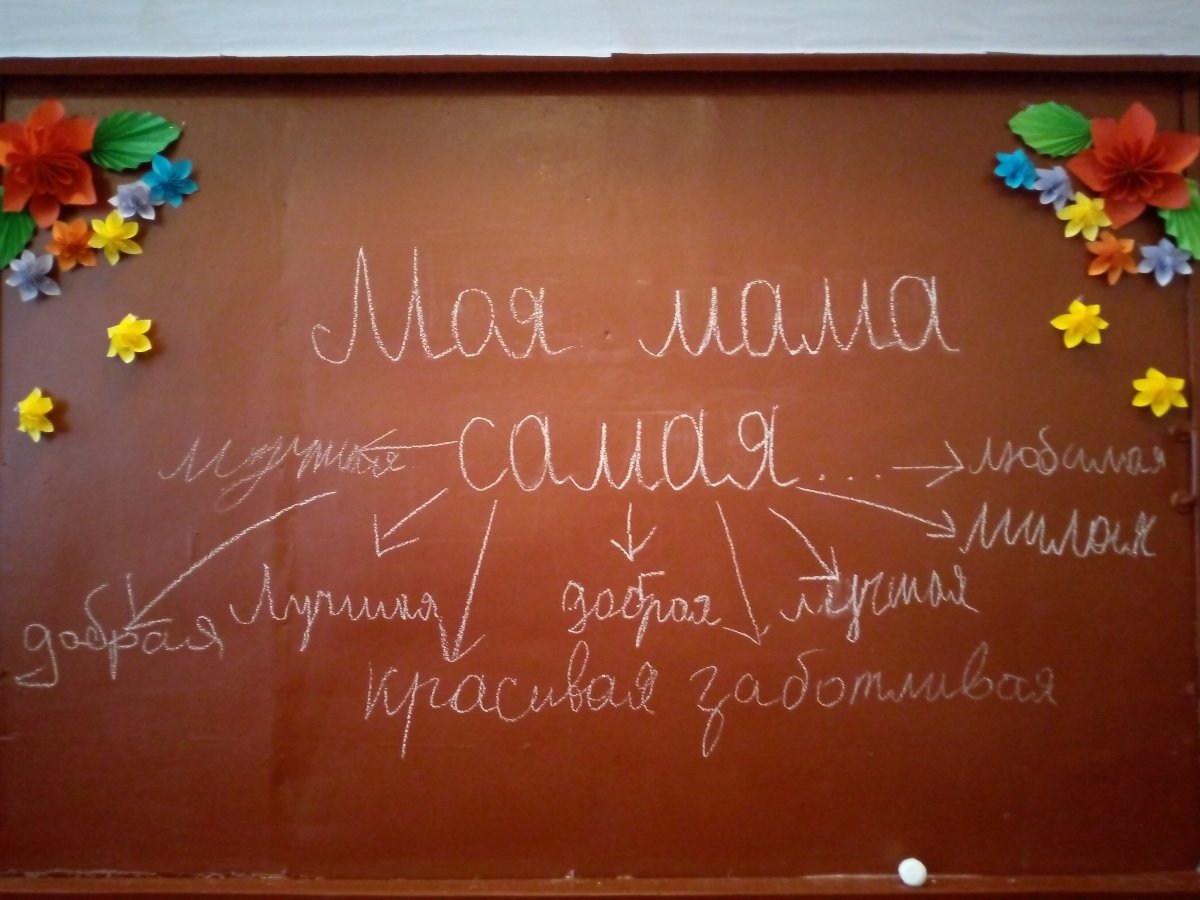 Мая мама
лучшая самая... любимая
милая
добрая Лучшая добрая лучшая
красивая заботливая